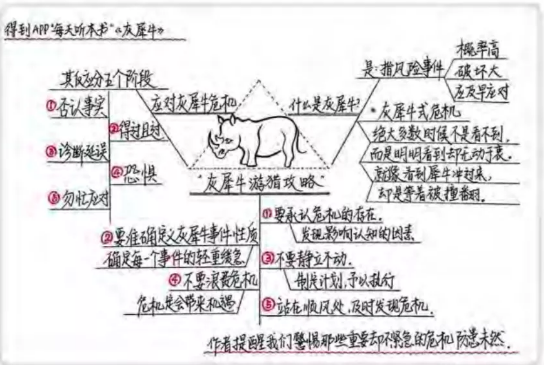 得到APP"每天听本书"《灰犀牛》
其反应分五个阶段
①否认事实
②得过且过
③诊断延误
④恐惧
⑤匆忙应对
应对灰犀牛危机
什么是灰犀牛?
是:指风险事件
概率高
破坏大
应及早应对
"灰犀牛式危机
绝大多数时候不是看不到,
而是明明看到却无动于衷。
就像看到犀牛冲过来,
却是等着被撞翻时。
"灰犀牛游猎攻略"
①要承认危机的存在.
发现影响认知的因素
②要准确定义灰犀牛事件性质
确定每一个事件的轻重缓急
③不要静立不动.
制定计划,予以执行
④不要浪费危机
危机是会带来机遇
⑤站在顺风处,及时发现危机.
作者提醒我们警惕那些重要却不紧急的危机 防患未然.